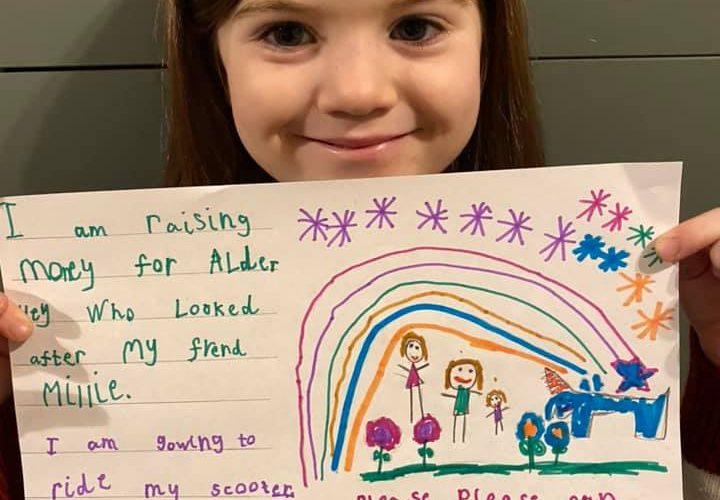 I am raising
money for Alder
Hey Who Looked
after my frend
Millie.
I am gowing to
ride my scooter
please please can